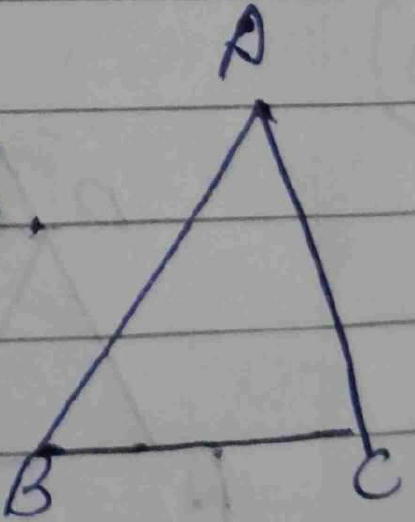 A
B C